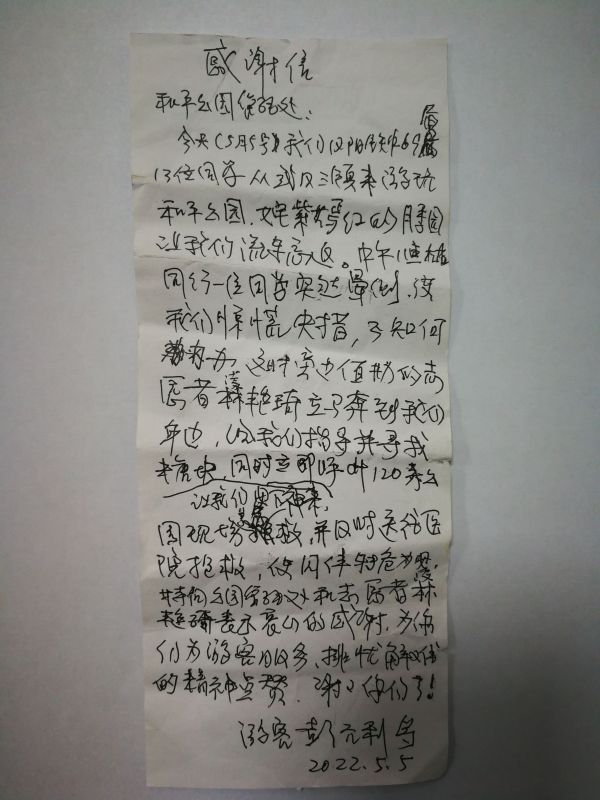 感谢信
和平公园管理处：
今天（5月5号）我们汉阳铁中69届
13位同学从武汉三镇来游玩
和平公园，姹紫嫣红的月季园
让我们流连忘返。中午11点左右
同行一位同学突然晕倒，使
我们惊慌失措，不知何
办 这时旁边值勤的志
愿者林艳琦立马奔到我们
身边，让我们指导并寻找
糖块，同时立即呼叫120来公
让我们坐下神来，
园现场抢救，并及时送往医
院抢救，使同伴转危为安，
特向公园管理处和志愿者林
艳琦表示衷心的感谢，为你
们为游客服务，排忧解难
的精神点赞，谢谢你们了！
游客 彭元利 等
2022.5.5